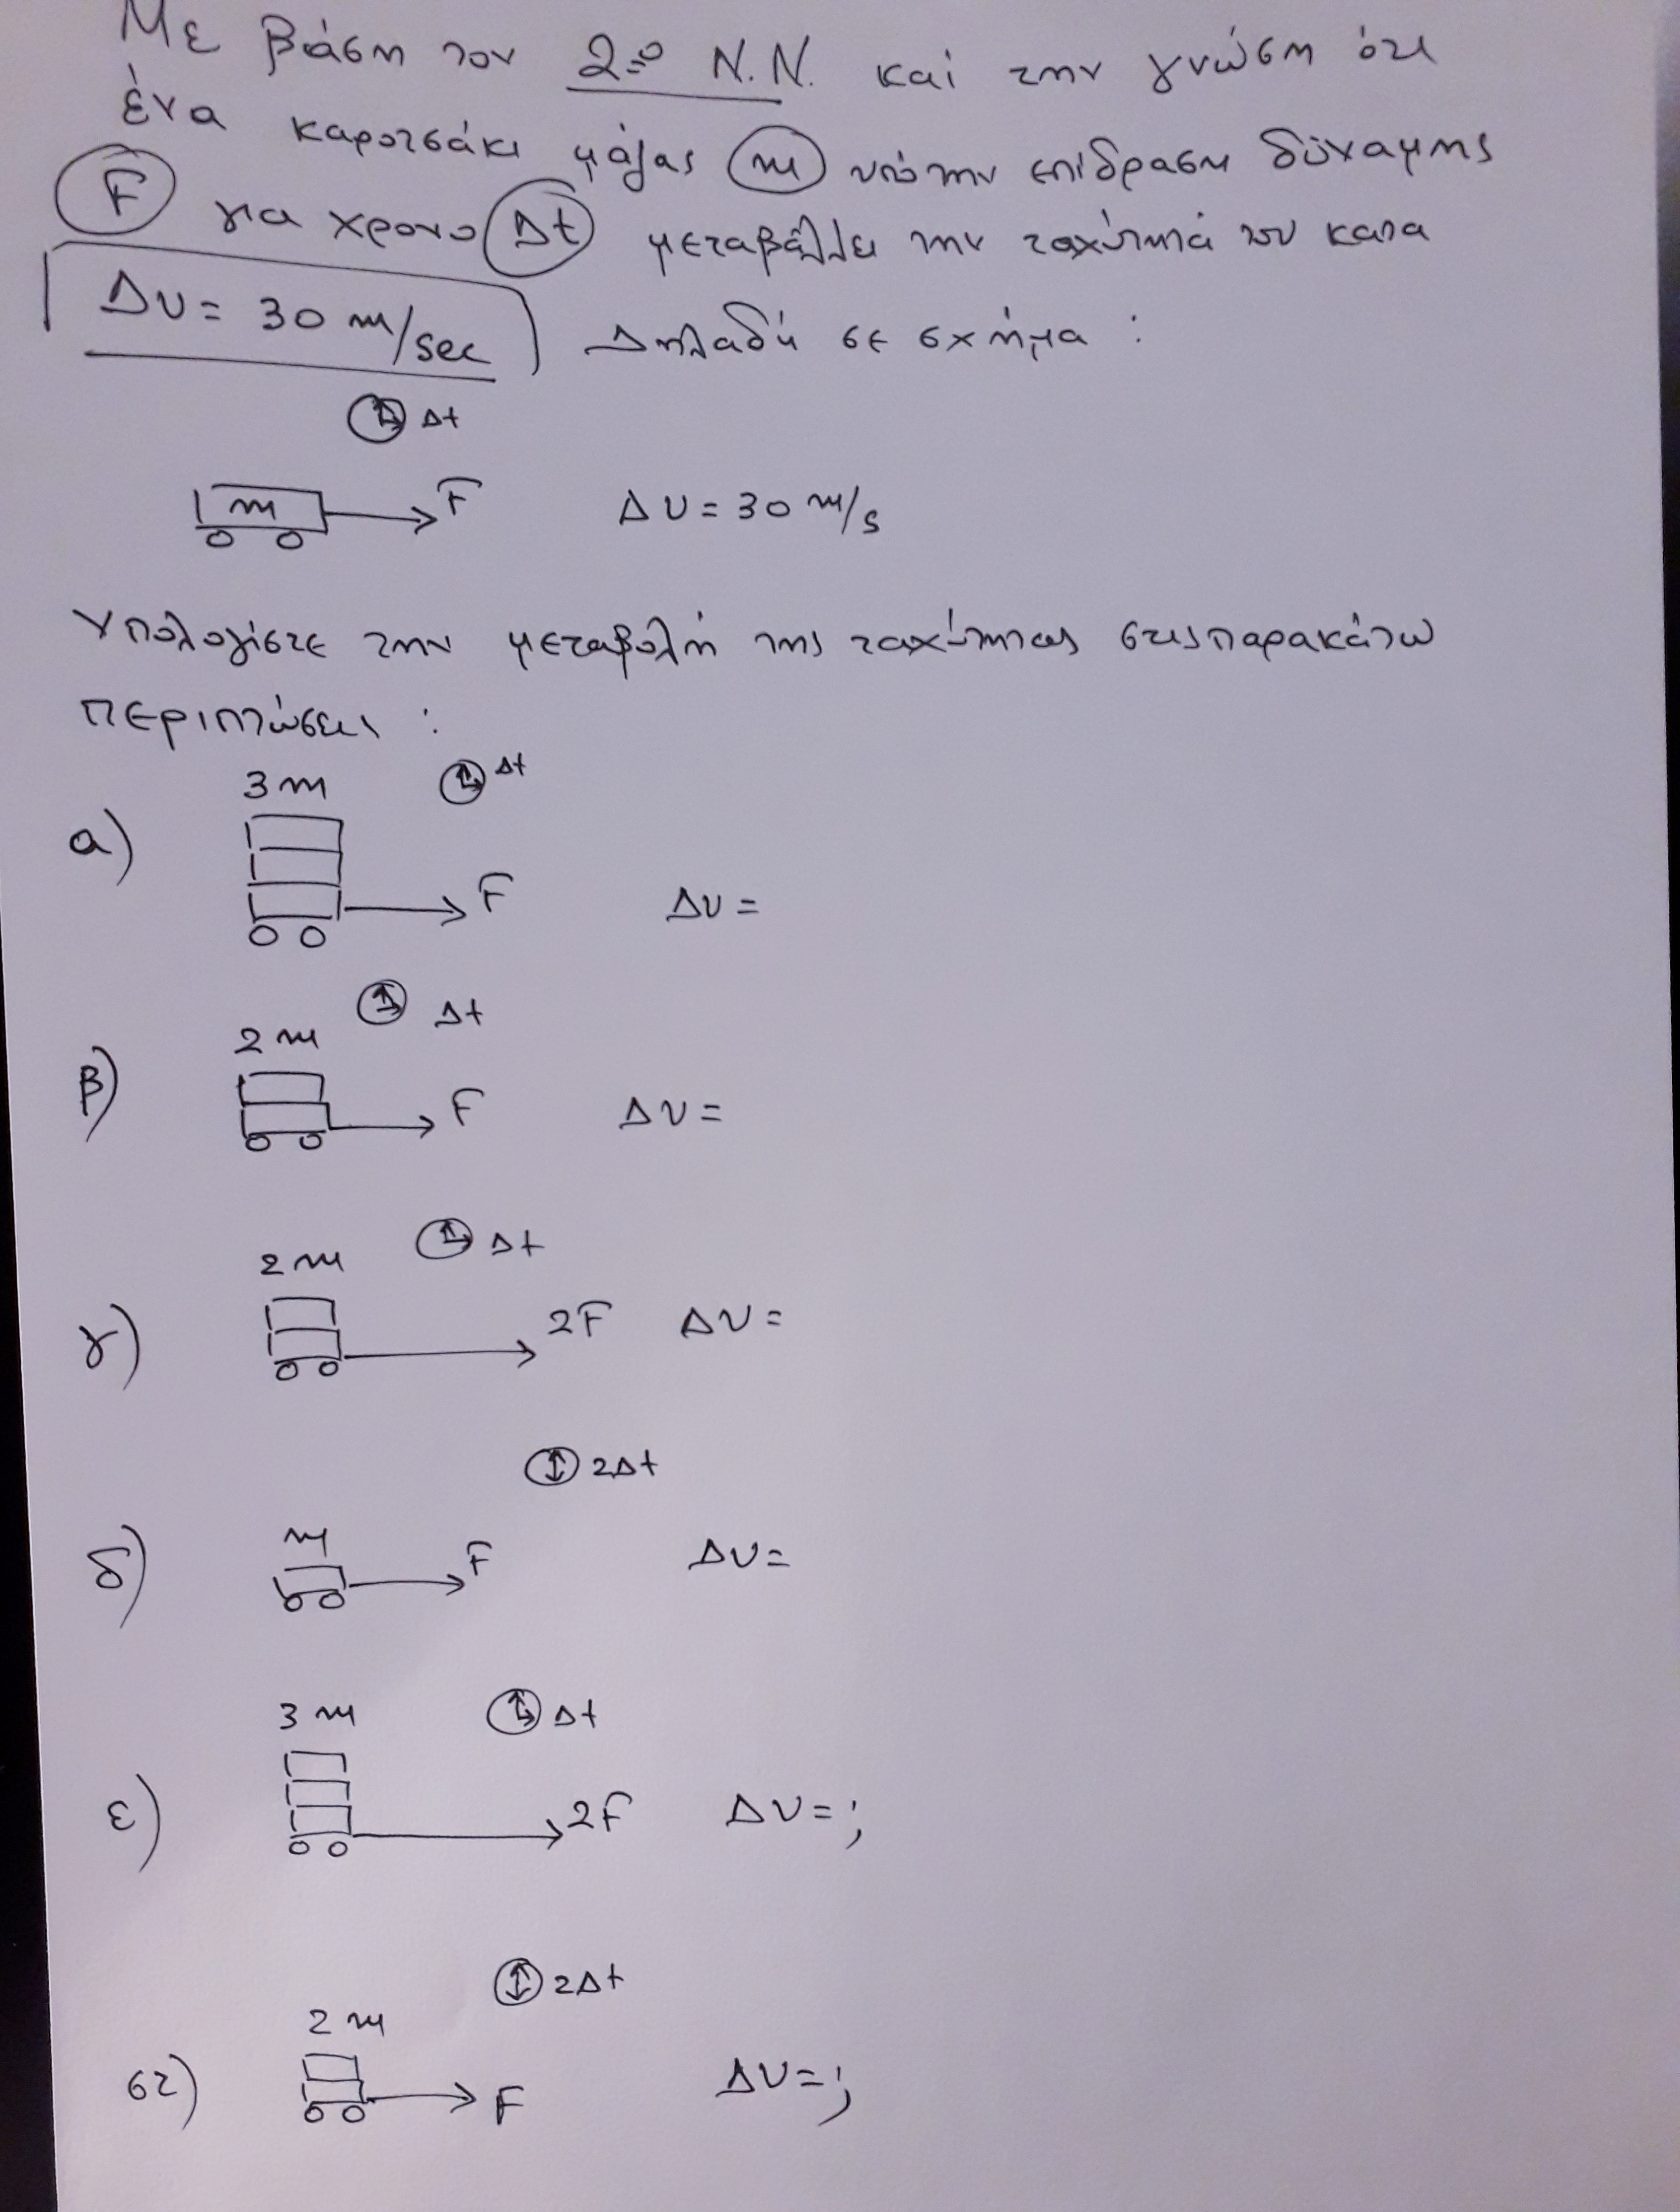 Με βάση τον 2ο Ν.Ν. και την γνώση ότι
ένα καροτσάκι μάζας m υπό την επίδραση δύναμης
F για χρονο Δt μεταβάλλει την ταχύτητά του κατα
Δυ = 30 m/sec Δηλαδή σε σχήμα :
Δt
m F Δυ = 30 m/s
Υπολογίστε την μεταβολή της ταχύτητας στις παρακάτω
περιπτώσεις :
3m Δt
α) F Δυ =
Δt
2m
β) F Δυ =
Δt
2m
γ) 2F Δυ =
2Δt
m
δ) F Δυ =
3m Δt
ε) 2F Δυ = ;
2Δt
2m
στ) F Δυ = ;